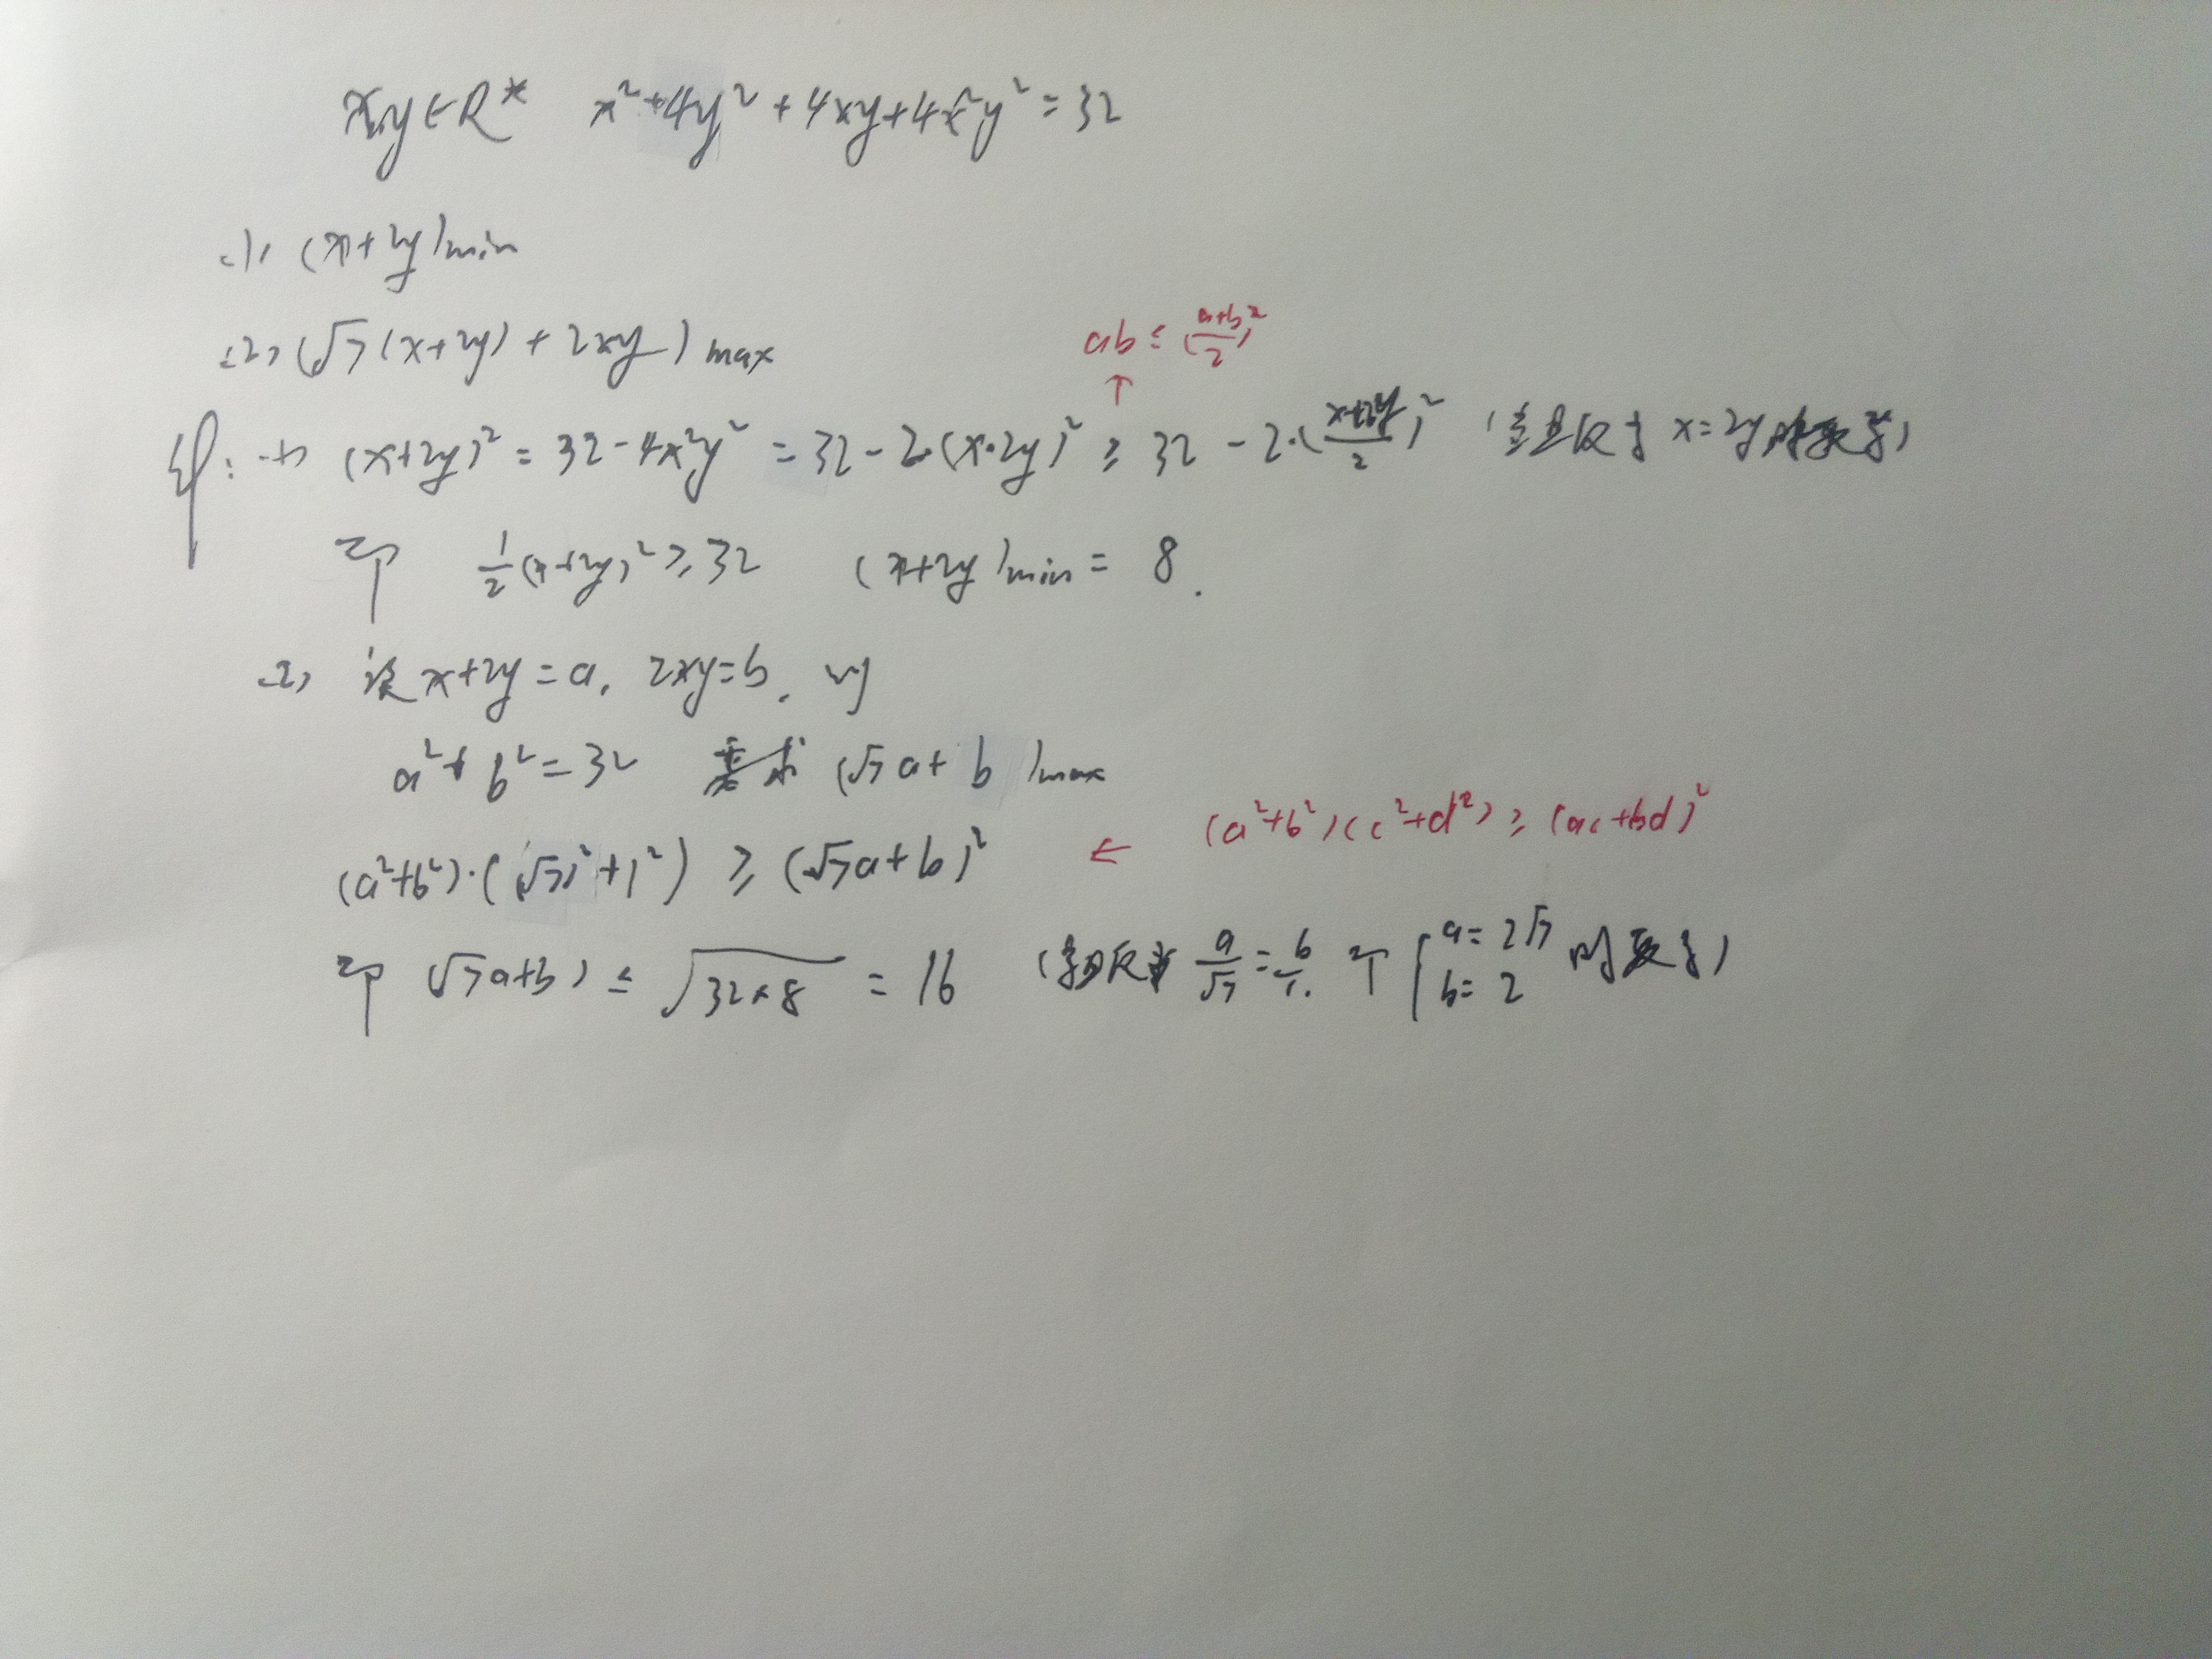 x,y∈R* x²+4y²+4xy+4x²y²=32
(1) (x+2y)min
(2) (√7(x+2y)+2xy)max
ab≤(a+b/2)²
↑
解: (1) (x+2y)²=32-4x²y²=32-2·(x·2y)²≥32-2·(x+2y/2)² (当且仅当x=2y时取等)
即 1/2(x+2y)²≥32 (x+2y)min=8.
(2) 设x+2y=a, 2xy=b, 则
a²+b²=32 要求 (√7a+b)max
(a²+b²)·(√7)²+1²)≥(√7a+b)² ← (a²+b²)(c²+d²)≥(ac+bd)²
即 √7a+b)≤√32×8=16 (当且仅当 a/√7=b/1. 即{a=2√7 b=2 时取等)